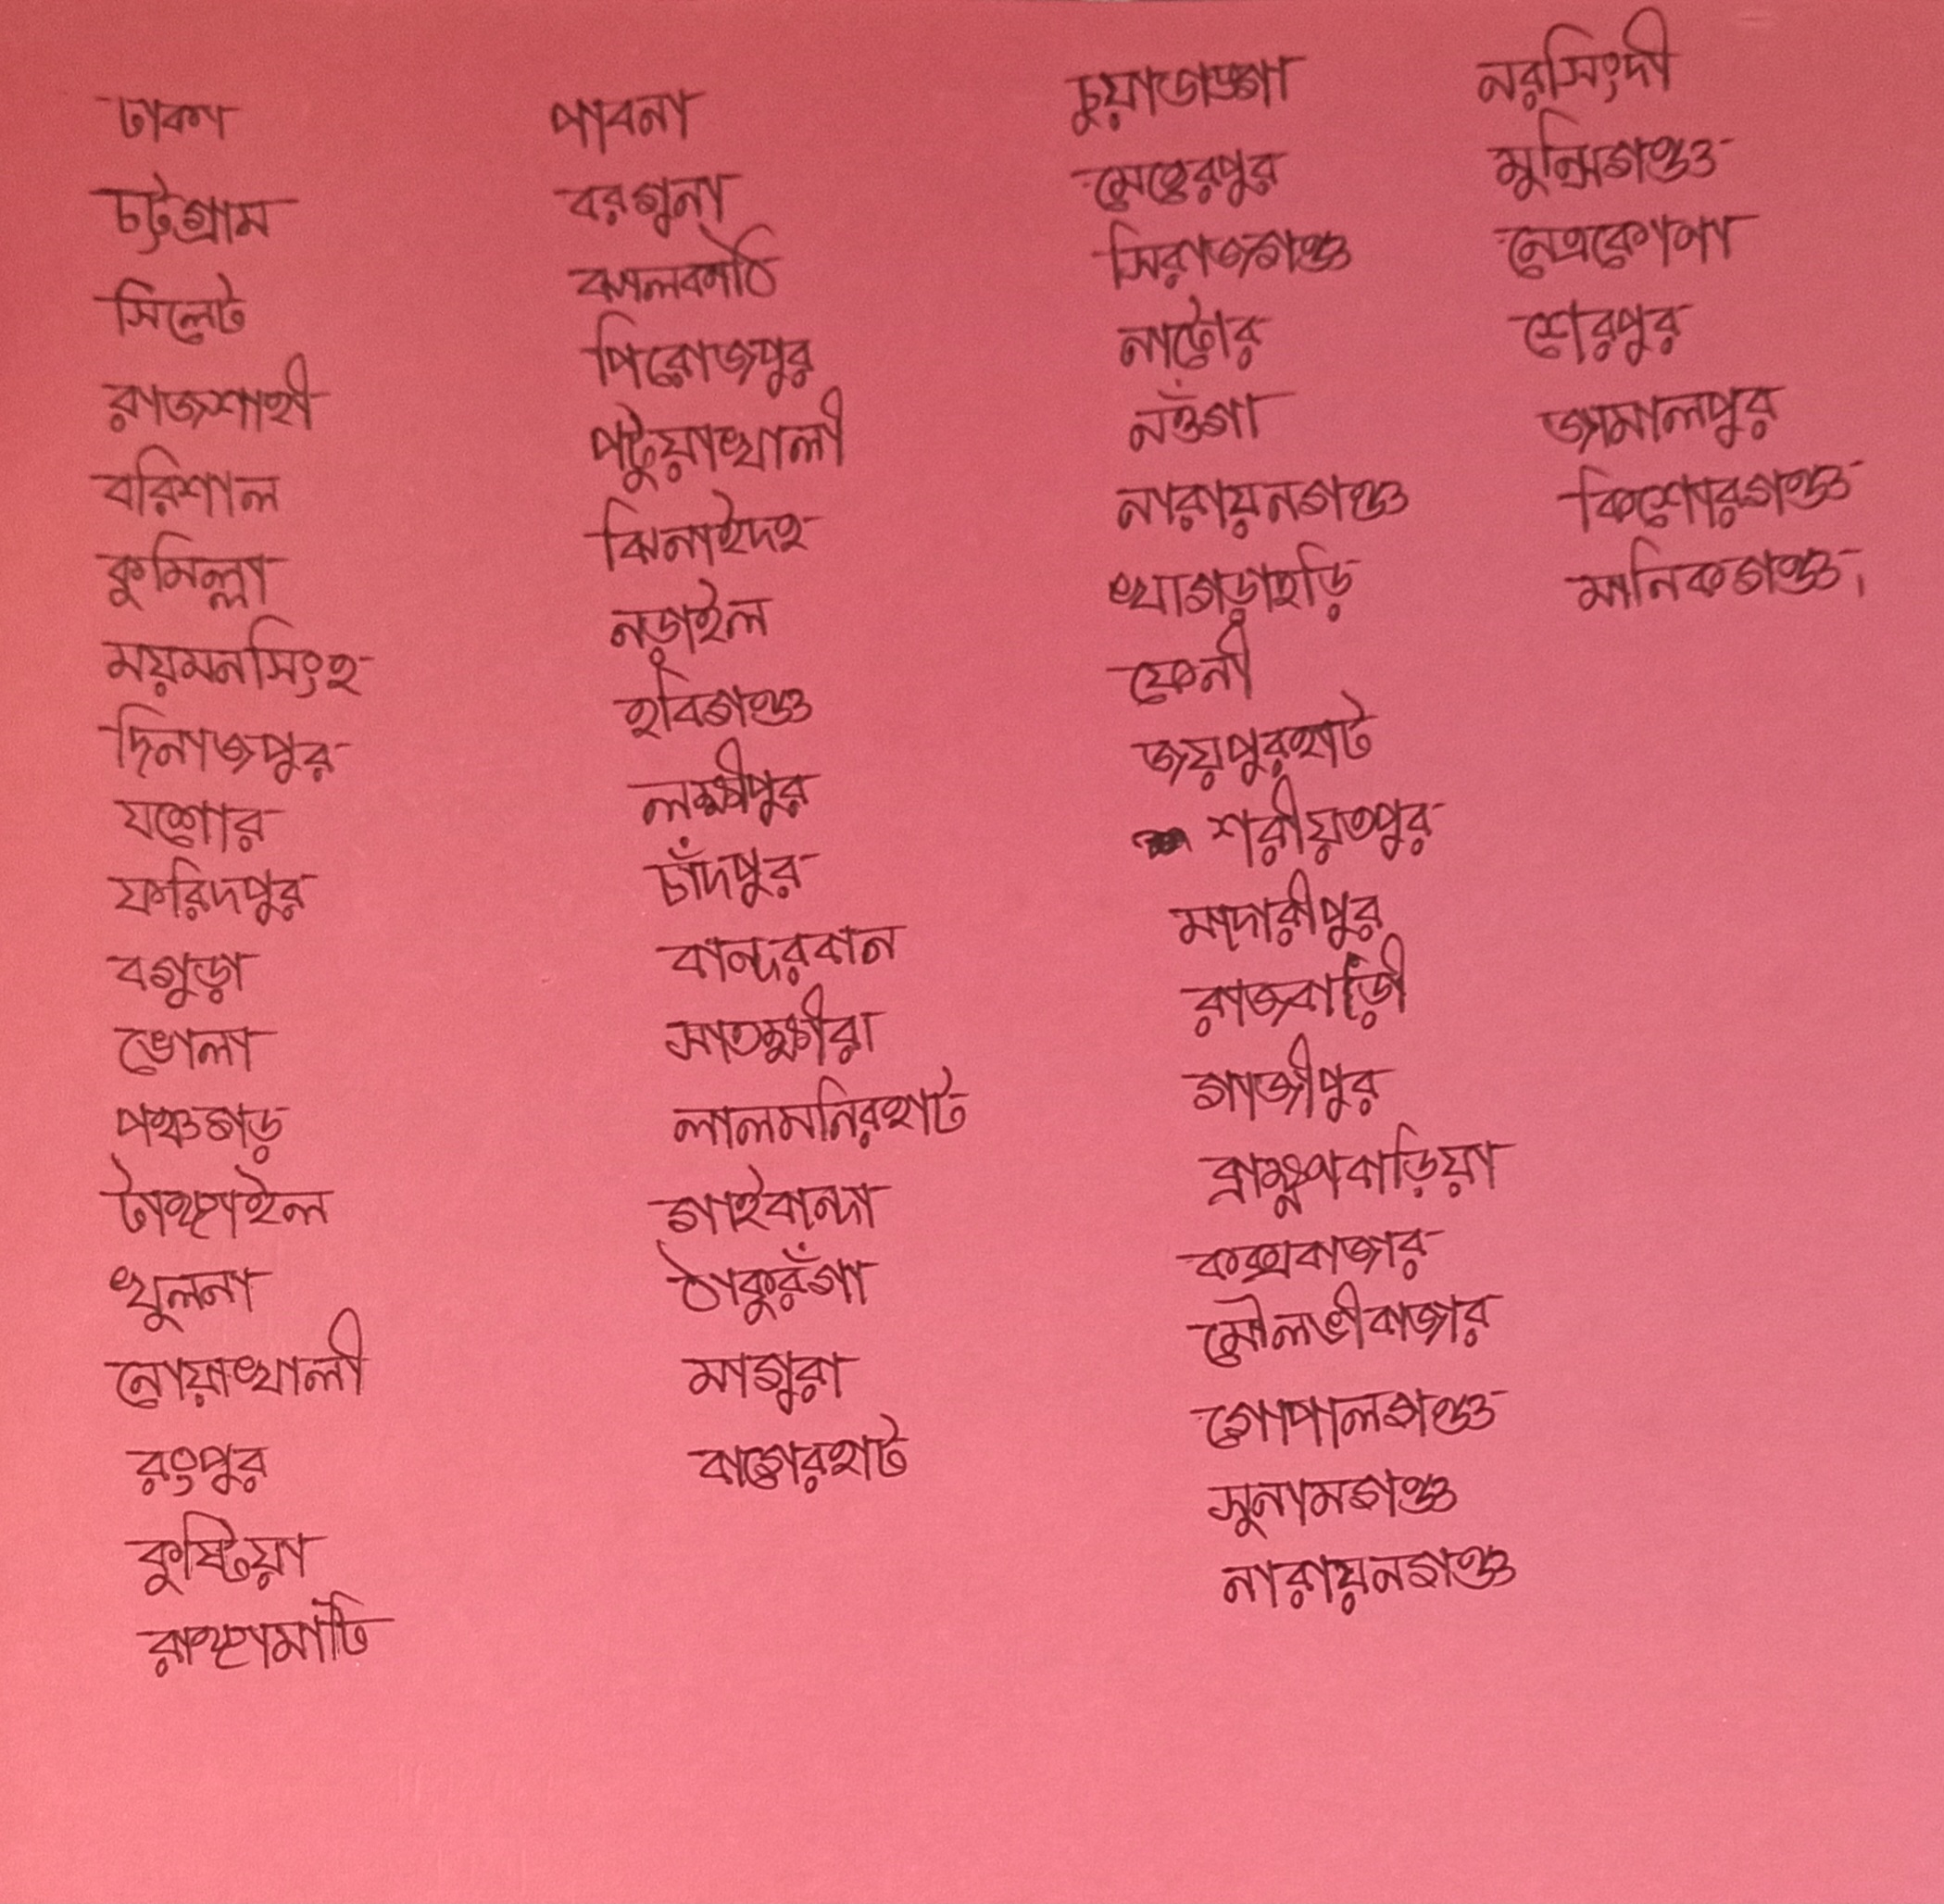 ঢাকা
চট্টগ্রাম
সিলেট
রাজশাহী
বরিশাল
কুমিল্লা
ময়মনসিংহ
দিনাজপুর
যশোর
ফরিদপুর
বগুড়া
ভোলা
পঞ্চগড়
টাঙ্গাইল
খুলনা
নোয়াখালী
রংপুর
কুষ্টিয়া
রাঙ্গামাটি
পাবনা
বরগুনা
ঝালকাঠি
পিরোজপুর
পটুয়াখালী
ঝিনাইদহ
নড়াইল
হবিগঞ্জ
লক্ষ্মীপুর
চাঁদপুর
বান্দরবান
সাতক্ষীরা
লালমনিরহাট
গাইবান্দা
ঠাকুরঁগা
মাগুরা
বাগেরহাট
চুয়াডাঙ্গা
মেহেরপুর
সিরাজগঞ্জ
নাটোর
নওঁগা
নারায়নগঞ্জ
খাগড়াছড়ি
ফেনী
জয়পুরহাট
শরীয়তপুর
মাদারীপুর
রাজবাড়ী
গাজীপুর
ব্রাক্ষ্মণবাড়িয়া
কক্সবাজার
মৌলভীবাজার
গোপালগঞ্জ
সুনামগঞ্জ
নারায়নগঞ্জ
নরসিংদী
মুন্সিগঞ্জ
নেত্রকোণা
শেরপুর
জামালপুর
কিশোরগঞ্জ
মানিকগঞ্জ।